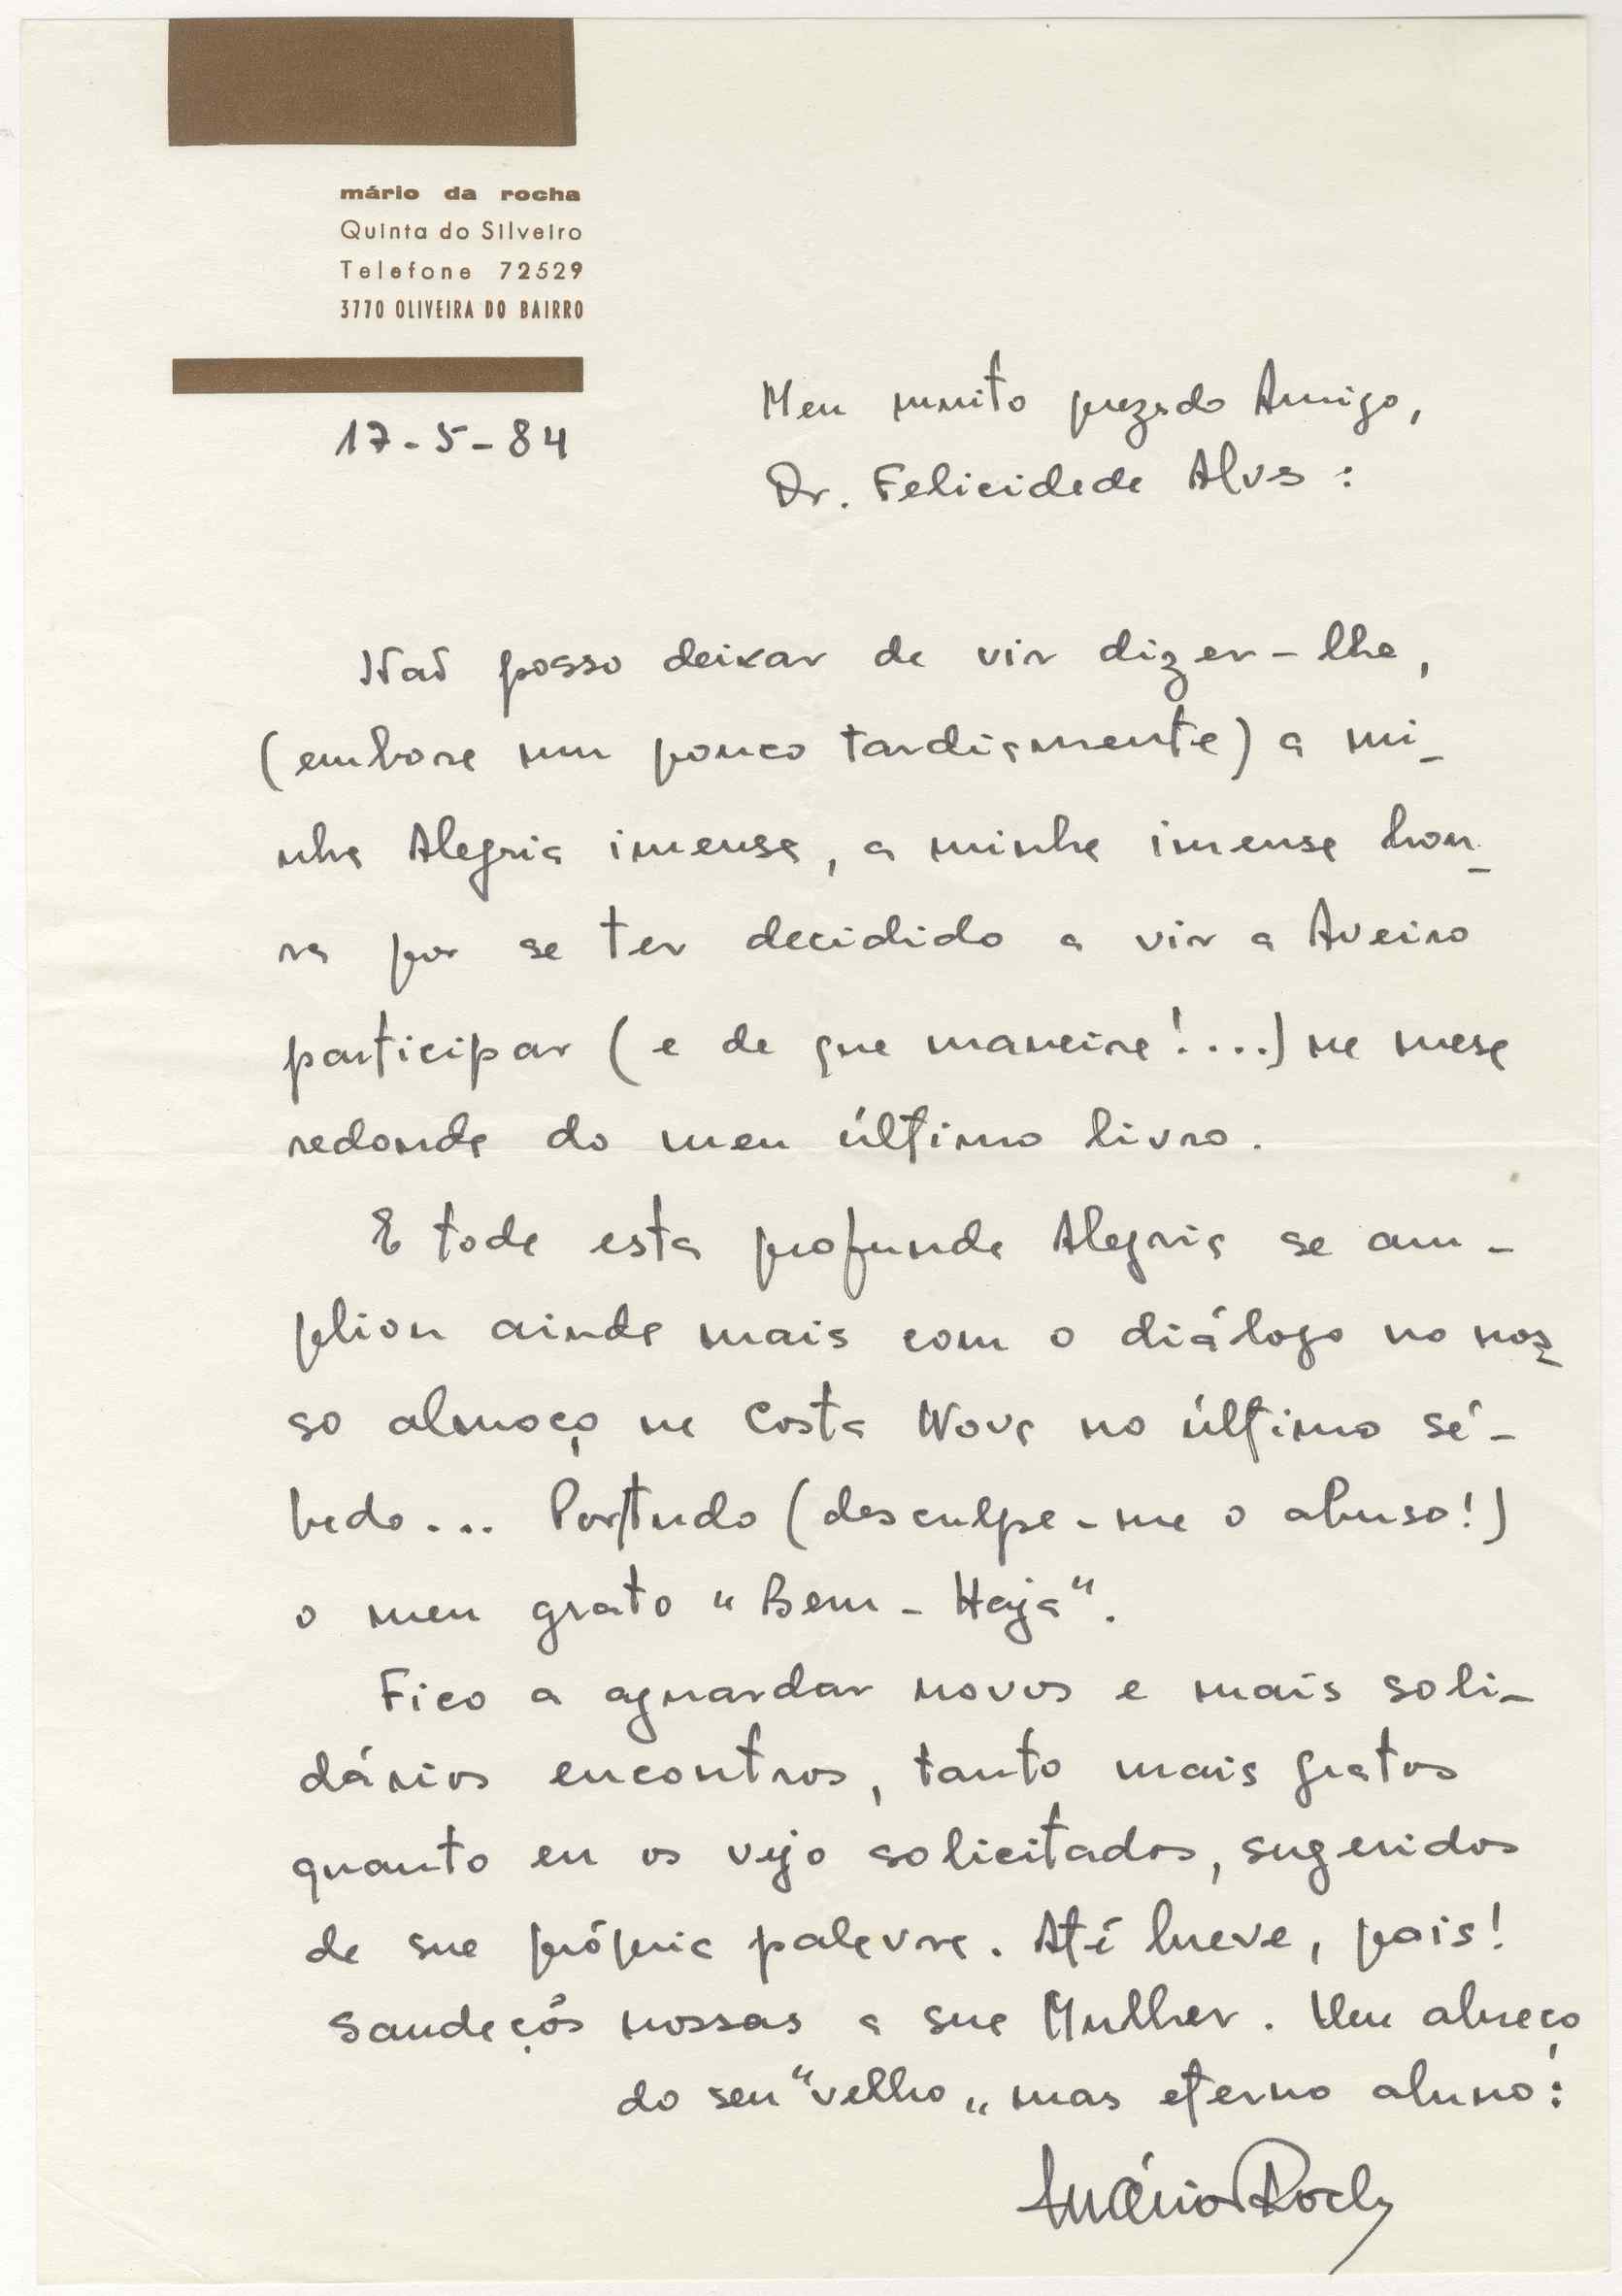 mário da rocha
Quinta do Silveiro
Telefone 72529
3770 OLIVEIRA DO BAIRRO
17-5-84
Meu muito prezado Amigo,
Dr. Felicidade Alves :
Não posso deixar de vir dizer-lhe,
(embora um pouco tardiamente) a mi-
nha Alegria imensa, a minha imensa hon-
ra por se ter decidido a vir a Aveiro
participar (e de que maneira!....) na mesa
redonda do meu último livro.
E toda esta profunda Alegria se am-
pliou ainda mais com o diálogo no nos-
so almoço na Costa Nova no último sá-
bado... Por tudo (desculpe-me o abuso!)
o meu grato "Bem-Haja".
Fico a aguardar novos e mais soli-
dários encontros, tanto mais gratos
quanto eu os vejo solicitados, sugeridos
de sua própria palavra. Até breve, pois!
Saudações nossas a sua Mulher. Um abraço
do seu "velho" mas eterno aluno:
Mário Rocha